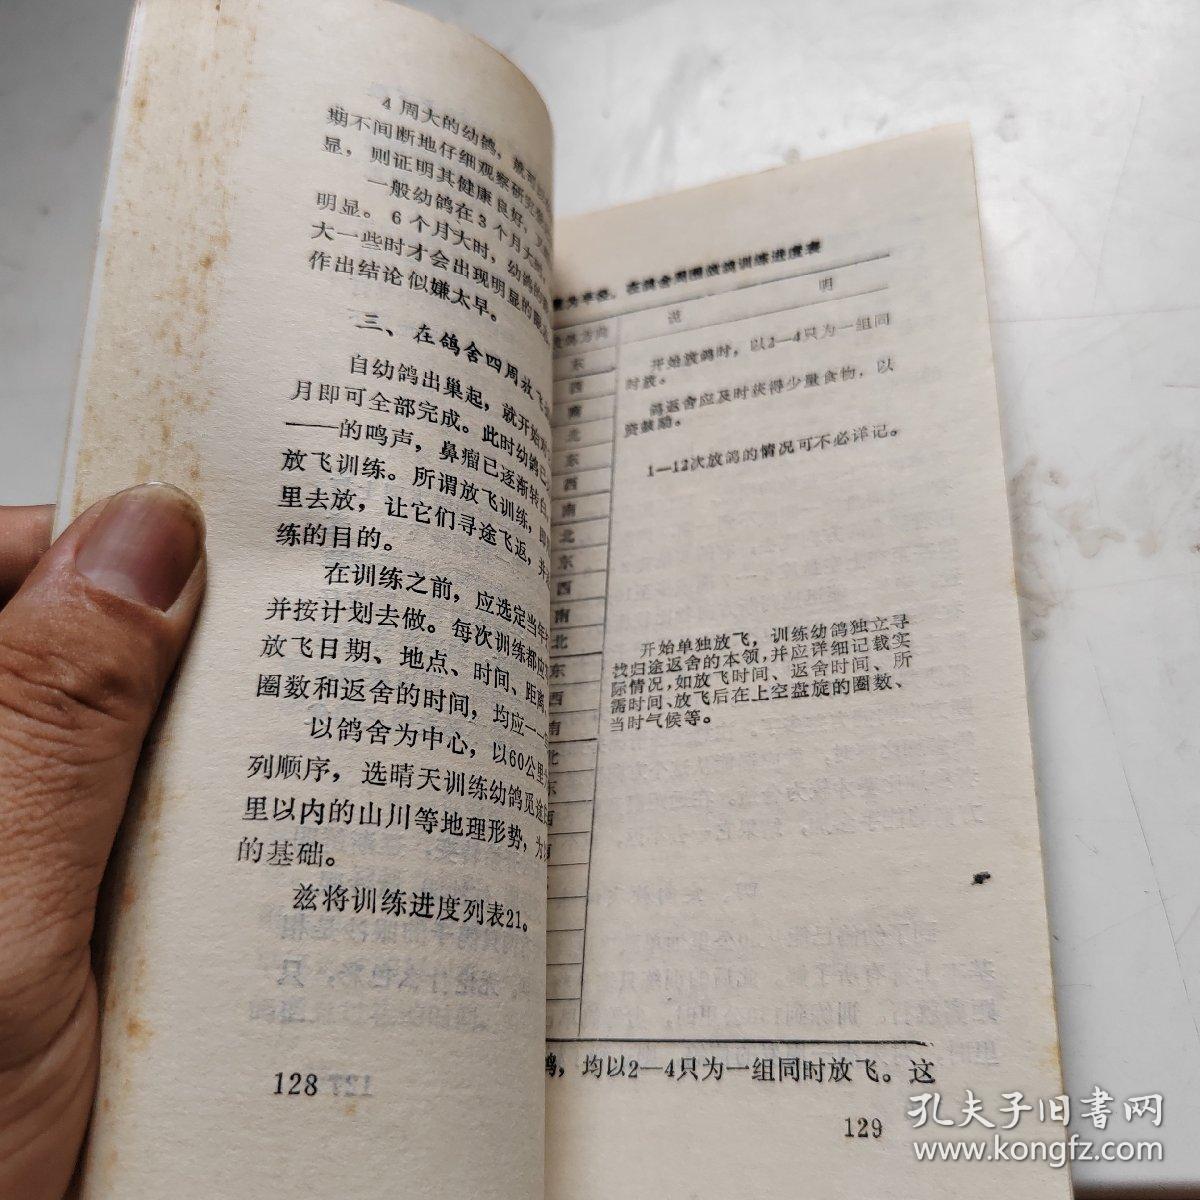 4周大的幼鸽，
期不间断地仔细观察研究
显，则证明其健康良好，
一般幼鸽在3个月大
明显。6个月大时，幼鸽的
大一些时才会出现明显的
作出结论似嫌太早。
三、在鸽舍四周放飞
自幼鸽出巢起，就开始
月即可全部完成。此时幼鸽已
——的鸣声，鼻瘤已逐渐转白
放飞训练。所谓放飞训练，即
里去放，让它们寻途飞返，并
练的目的。
在训练之前，应选定当年
并按计划去做。每次训练都应
放飞日期、地点、时间、距离、
圈数和返舍的时间，均应一一
以鸽舍为中心，以60公里
列顺序，选晴天训练幼鸽觅途
里以内的山川等地理形势，为
的基础。
兹将训练进度列表21。
128
为半径，在鸽舍周围放鸽训练进度表
方向
说 明
东
西
南
北
东
西
南
北
东
西
南
北
东
西
南
北
东
西
开始放鸽时，以2—4只为一组同
时放。
鸽返舍应及时获得少量食物，以
资鼓励。
1—12次放鸽的情况可不必详记。
开始单独放飞，训练幼鸽独立寻
找归途返舍的本领，并应详细记载实
际情况，如放飞时间、返舍时间、所
需时间、放飞后在上空盘旋的圈数、
当时气候等。
鸽，均以2—4只为一组同时放飞。这
129
孔夫子旧书网
www.kongfz.com